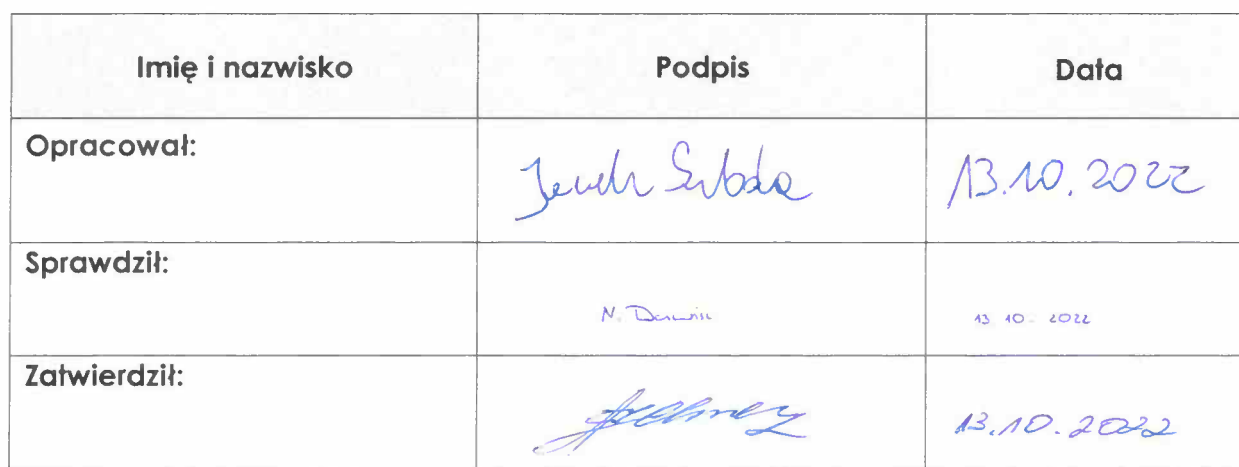 Imię i nazwisko Podpis Data
Opracował:
13.10.2022
Sprawdził:
N. 13 10 - 2022
Zatwierdził:
13.10.2022